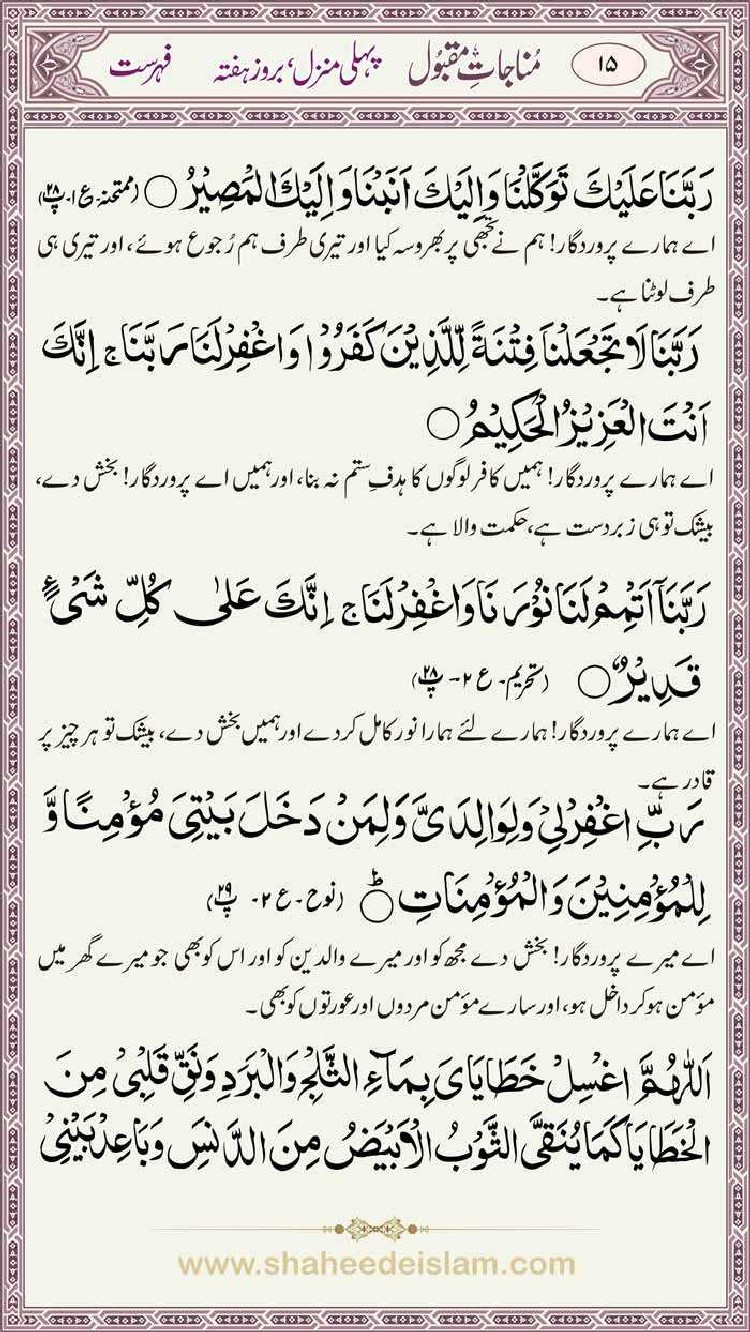 ۱۵ مُناجاتِ مقبُول پہلی منزل، بروز ہفتہ فہرست
رَبَّنَا عَلَيْكَ تَوَكَّلْنَا وَاِلَيْكَ اَنَبْنَا وَاِلَيْكَ الْمَصِيْرُ ○ (ممتحنہ۔ ع ۱۔ پ ۲۸)
اے ہمارے پروردگار! ہم نے تجھی پر بھروسہ کیا اور تیری طرف ہم رُجوع ہوئے، اور تیری ہی
طرف لوٹنا ہے۔
رَبَّنَا لَا تَجْعَلْنَا فِتْنَةً لِّلَّذِيْنَ كَفَرُوْا وَاغْفِرْلَنَا رَبَّنَا ج اِنَّكَ
اَنْتَ الْعَزِيْزُ الْحَكِيْمُ ○
اے ہمارے پروردگار! ہمیں کافر لوگوں کا ہدفِ ستم نہ بنا، اور ہمیں اے پروردگار! بخش دے،
بیشک تو ہی زبردست ہے، حکمت والا ہے۔
رَبَّنَآ اَتْمِمْ لَنَا نُوْرَنَا وَاغْفِرْلَنَا ج اِنَّكَ عَلٰى كُلِّ شَىْءٍ
قَدِيْرٌ ○ (تحریم۔ ع ۲۔ پ ۲۸)
اے ہمارے پروردگار! ہمارے لئے ہمارا نور کامل کردے اور ہمیں بخش دے، بیشک تو ہر چیز پر
قادر ہے۔
رَبِّ اغْفِرْلِىْ وَلِوَالِدَىَّ وَلِمَنْ دَخَلَ بَيْتِىَ مُؤْمِنًا وَّ
لِلْمُؤْمِنِيْنَ وَالْمُؤْمِنَاتِ ط ○ (نوح۔ ع ۲۔ پ ۲۹)
اے میرے پروردگار! بخش دے مجھ کو اور میرے والدین کو اور اس کو بھی جو میرے گھر میں
مؤمن ہوکر داخل ہو، اور سارے مؤمن مردوں اور عورتوں کو بھی۔
اَللّٰهُمَّ اغْسِلْ خَطَايَاىَ بِمَآءِ الثَّلْجِ وَالْبَرَدِ وَنَقِّ قَلْبِىْ مِنَ
الْخَطَايَا كَمَا يُنَقَّى الثَّوْبُ الْاَبْيَضُ مِنَ الدَّنَسِ وَبَاعِدْ بَيْنِىْ
www.shaheedeislam.com